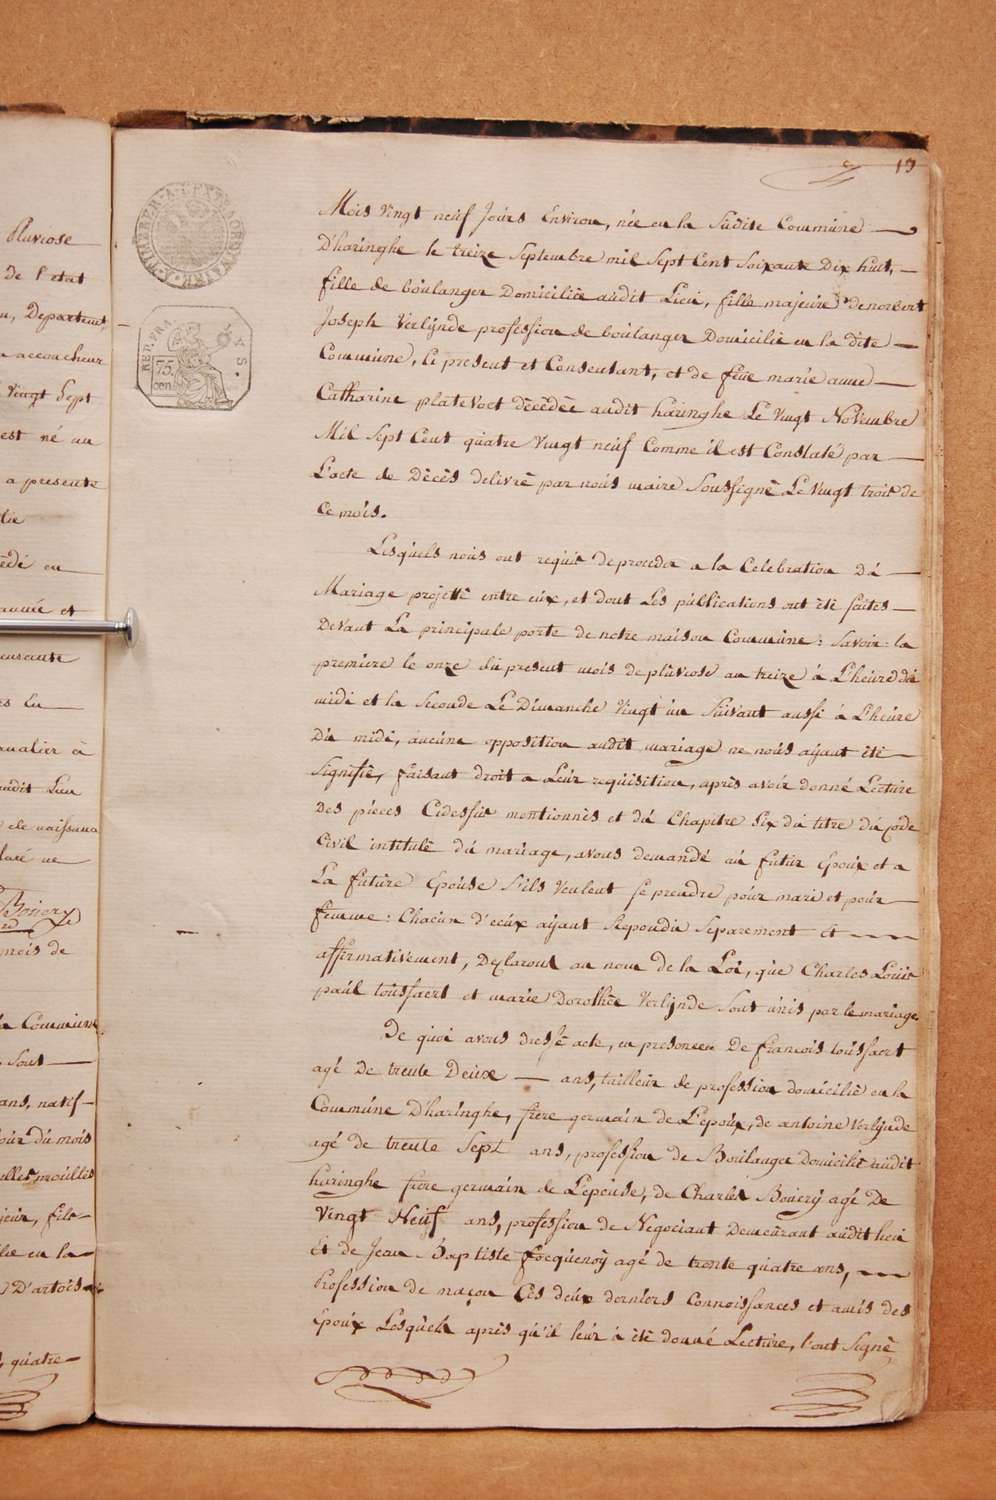 13
TIMBRER A L'EXTRAORDINAIRE
REP. FRA
75.
cen.
Mois Vingt neuf Jours Environ, née en la Sudite Commune
D'haringhe le treize Septembre mil Sept Cent Soixante Dix huit,
fille de boulanger Domiciliée audit Lieu, fille majeure de norbert
Joseph Verlijnde profession de boulanger Domicilié en la dite
Commune, ci present et Consentant, et de feüe marie anne
Catharine platevoet dècèdèe audit haringhe Le Vingt Novembre
Mil Sept Cent quatre Vingt neuf Comme il est Constaté par
L'acte de Décès delivrè par noùs maire Soussignè Le Vingt trois de
Ce mois.
Lesquels nous ont requis de proceder a la Celebration dú
Mariage projettè entre eux, et dont Les publications ont été faites
Devant La principale porte de notre maison Commune : Savoir : la
premiere le onze du present mois de pluviose an treize à L'heure dù
midi et la Seconde Le Dimanche Vingt un Suivant aussi à L'heure
Dù midi, aucune opposition audit mariage ne noùs ayant étè
Signifiè, faisant droit a Leùr requisition, après avoir donné Lecture
Des pièces Cidessùs mentionnés et dù Chapitre Six dù titre dù Code
Civil intitulè dú mariage, avons demandé aù futur Epoux et a
La future Epouse S'ils Veulent se prendre poùr mari et poùr
femme : Chacun d'eeux ayant Repondu Separement et
affirmativement, Declarons au nom de la Loi, que Charles Louis
paùl toùssaert et marie Dorothèe Verlijnde Sont ùnis par le mariage.
De quoi avons dressè acte, en presencen De françois toùssaert
agé de trente Deux ans, tailleur de profession domiciliè en la
Commùne D'haringhe, frere germain de L'epoùx, de antoine Verlijnde
agé de trente Sept ans, profession de Boulanger domiciliè audit
haringhe frère germain de L'epoùse, de Charles Bouery agé De
Vingt Neuf ans, profession de Negociant Demeurant audit lieu
et de Jean Baptiste focquenoy agé de trente quatre ans,
Profession de maçon Ces deux derniers Connoissances et amis des
Epoux Lesquels après qu'il leùr à étè donné Lecture, l'ont Signè
Pluviose
de l'etat
Departmt.
accoucheur
Vingt Sept
est né au
a presente
en
et
audit Lieu
de naissance
mois de
la Commune
Sont
ans, natif
jour dú mois
en la
D'artois
quatre